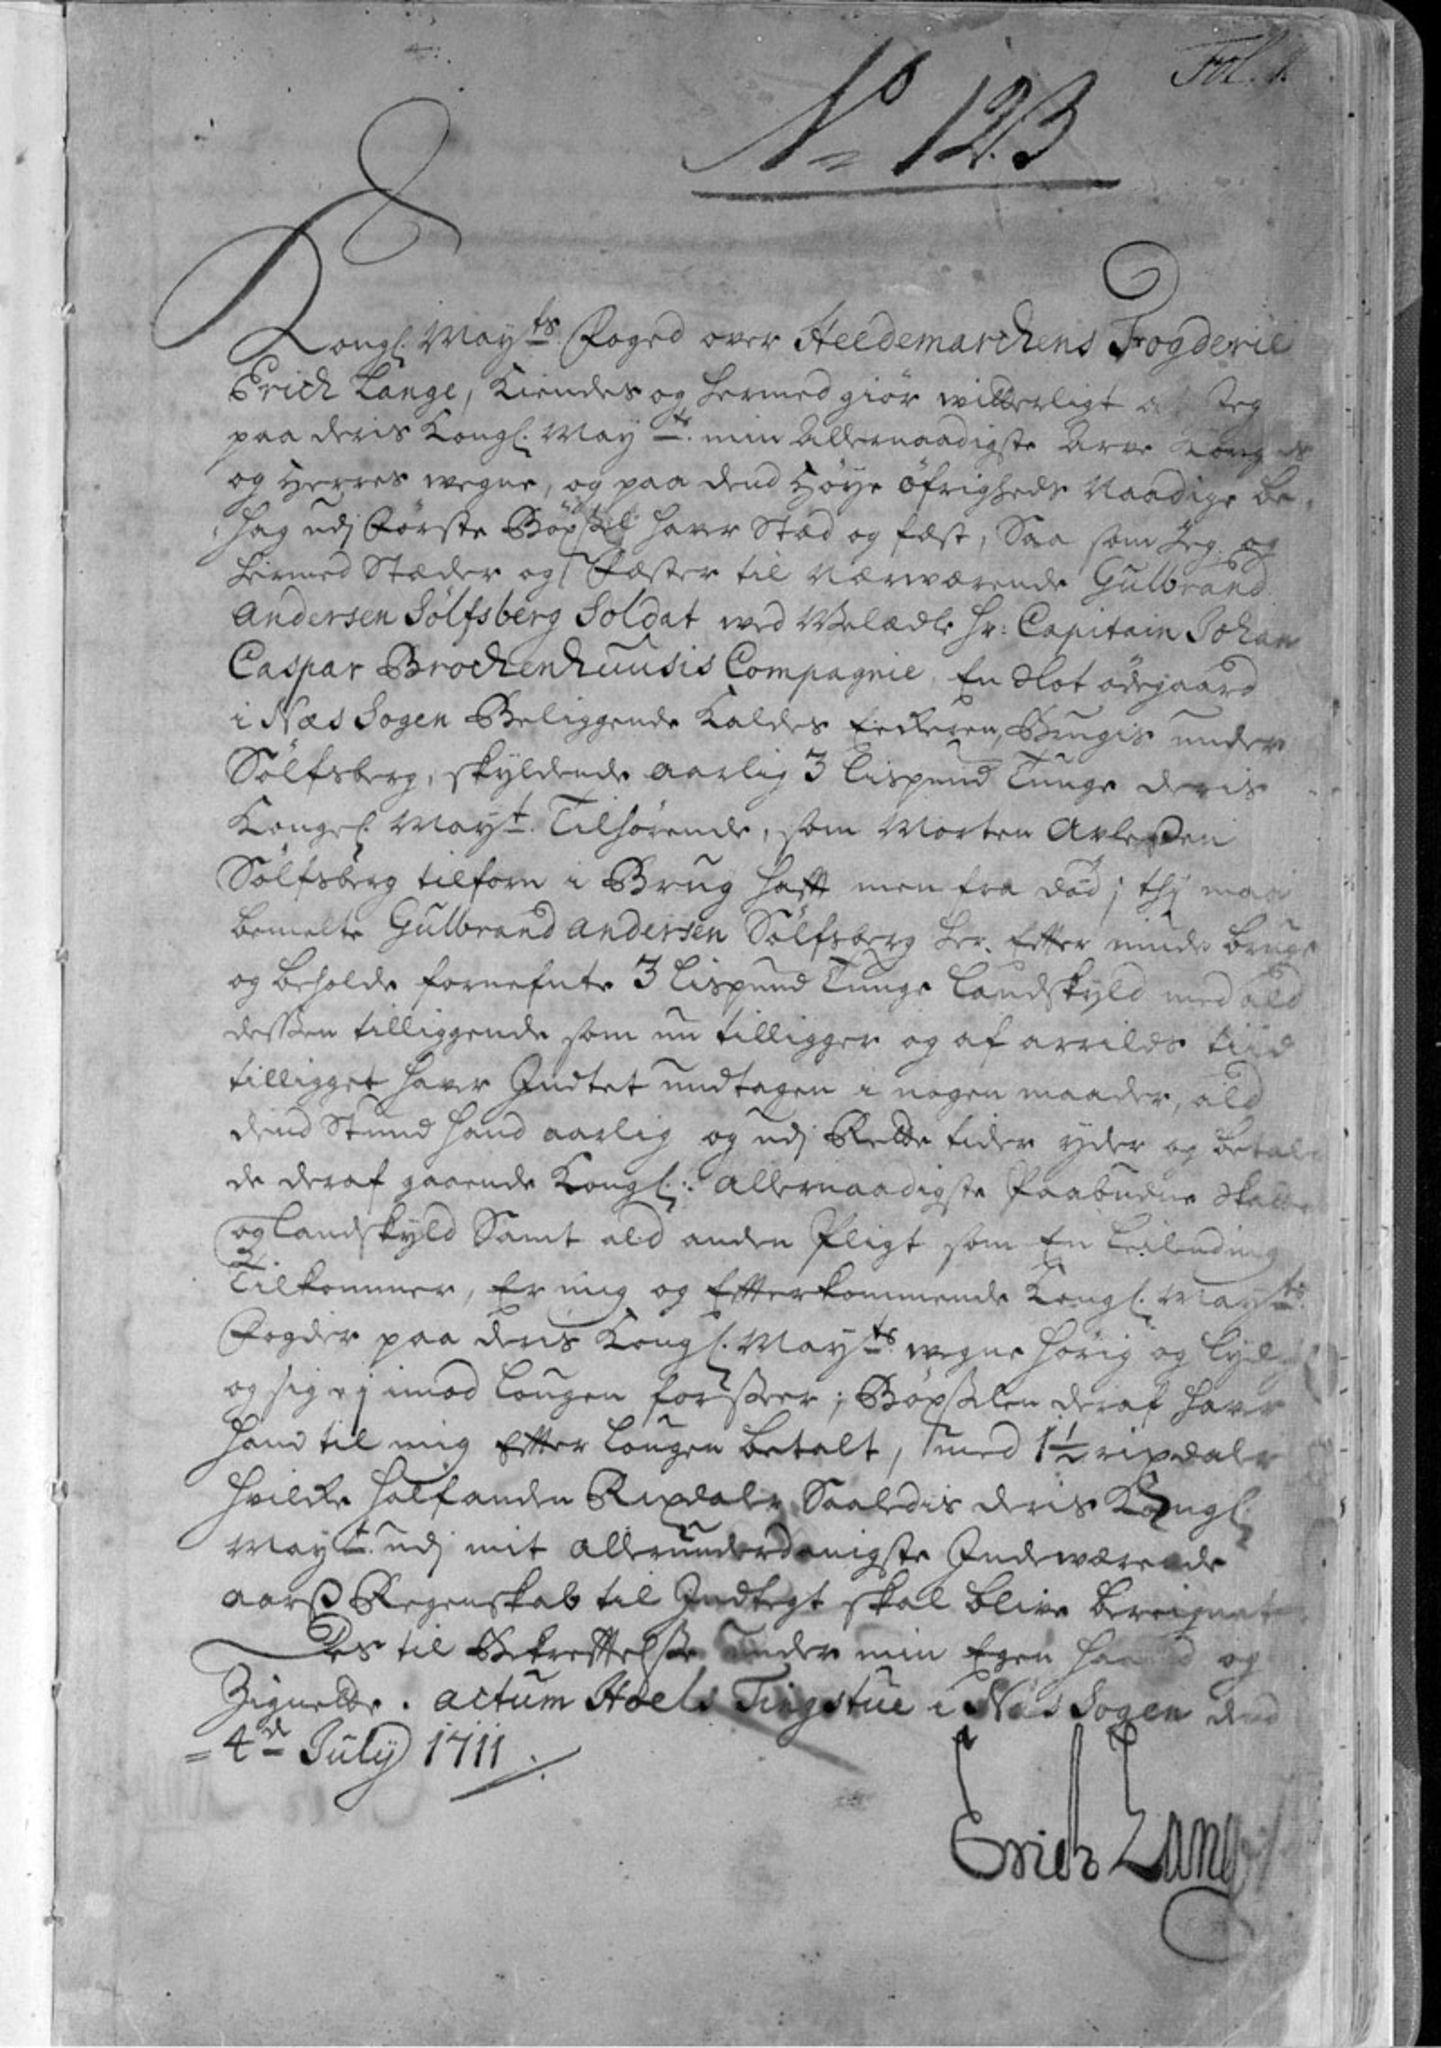 Fol. 1.
No 123
Kongl. Mayts. Foged over Heedemarchens Fogderie
Erich Lange, Kiendes og hermed giør witterligt at Jeg
paa deris Kongl. Mayts. min Allernaadigste Arve Konges
og Herres wegne, og paa dend Høye öfrigheds Naadige be-
hag udj Første Böxsel hafr Stæd og fæst, Saa som Jeg og
hermed Stæder og Fæster til Nærwærende Gulbrand
Andersen Sölfsberg Soldat wed Welædle Hr: Capitain Johan
Caspar Brochenhuusis Compagnie, En Slet ödegaard
i Næs Sogen Beliggende Kaldes Eicheren, Brugis under
Sölfsberg, skyldende aarlig 3 Lispund Tunge deris
Kongel. Mayt. Tilhörende, som Morten Arleßen
Sölfsberg tilforn i Brug hafft men fra död; thj maa
bemelte Gulbrand Andersen Sölfsberg her Efter niude bruge
og beholde fornefnte 3 Lispund Tunge Landskyld med ald
desßen tilliggende som nu tilligger og af arrilds tiid
tilligget hafr Indtet undtagen i nogen maader, ald
dend Stund hand aarlig og udj Rette tider yder og betaler
de deraf gaaende Kongl: Allernaadigste Paabudne Skatter
og Landskyld Samt ald anden Pligt som En Leilending
Tilkommer, Er mig og Efterkommende Kongl. Mayts.
Fogder paa deris Kongl. Mayts wegne hörig og lydig
og sig ej imod Lougen forseer; Böxselen deraf hafr
hand til mig Efter Lougen betalt, med 1½ rixdaler
hvilke halfanden Rixdaler Saaledis deris Kongl
Mayt. udj mit allerunderdanigste Indewærende
aars Regenskab til Indtegt skal blive bereignet
Des til Bekreftelse under min Egen Haand og
Zignette. Actum Hoels Tingstue i Næs Sogen dend
= 4de July 1711
Erich Lange